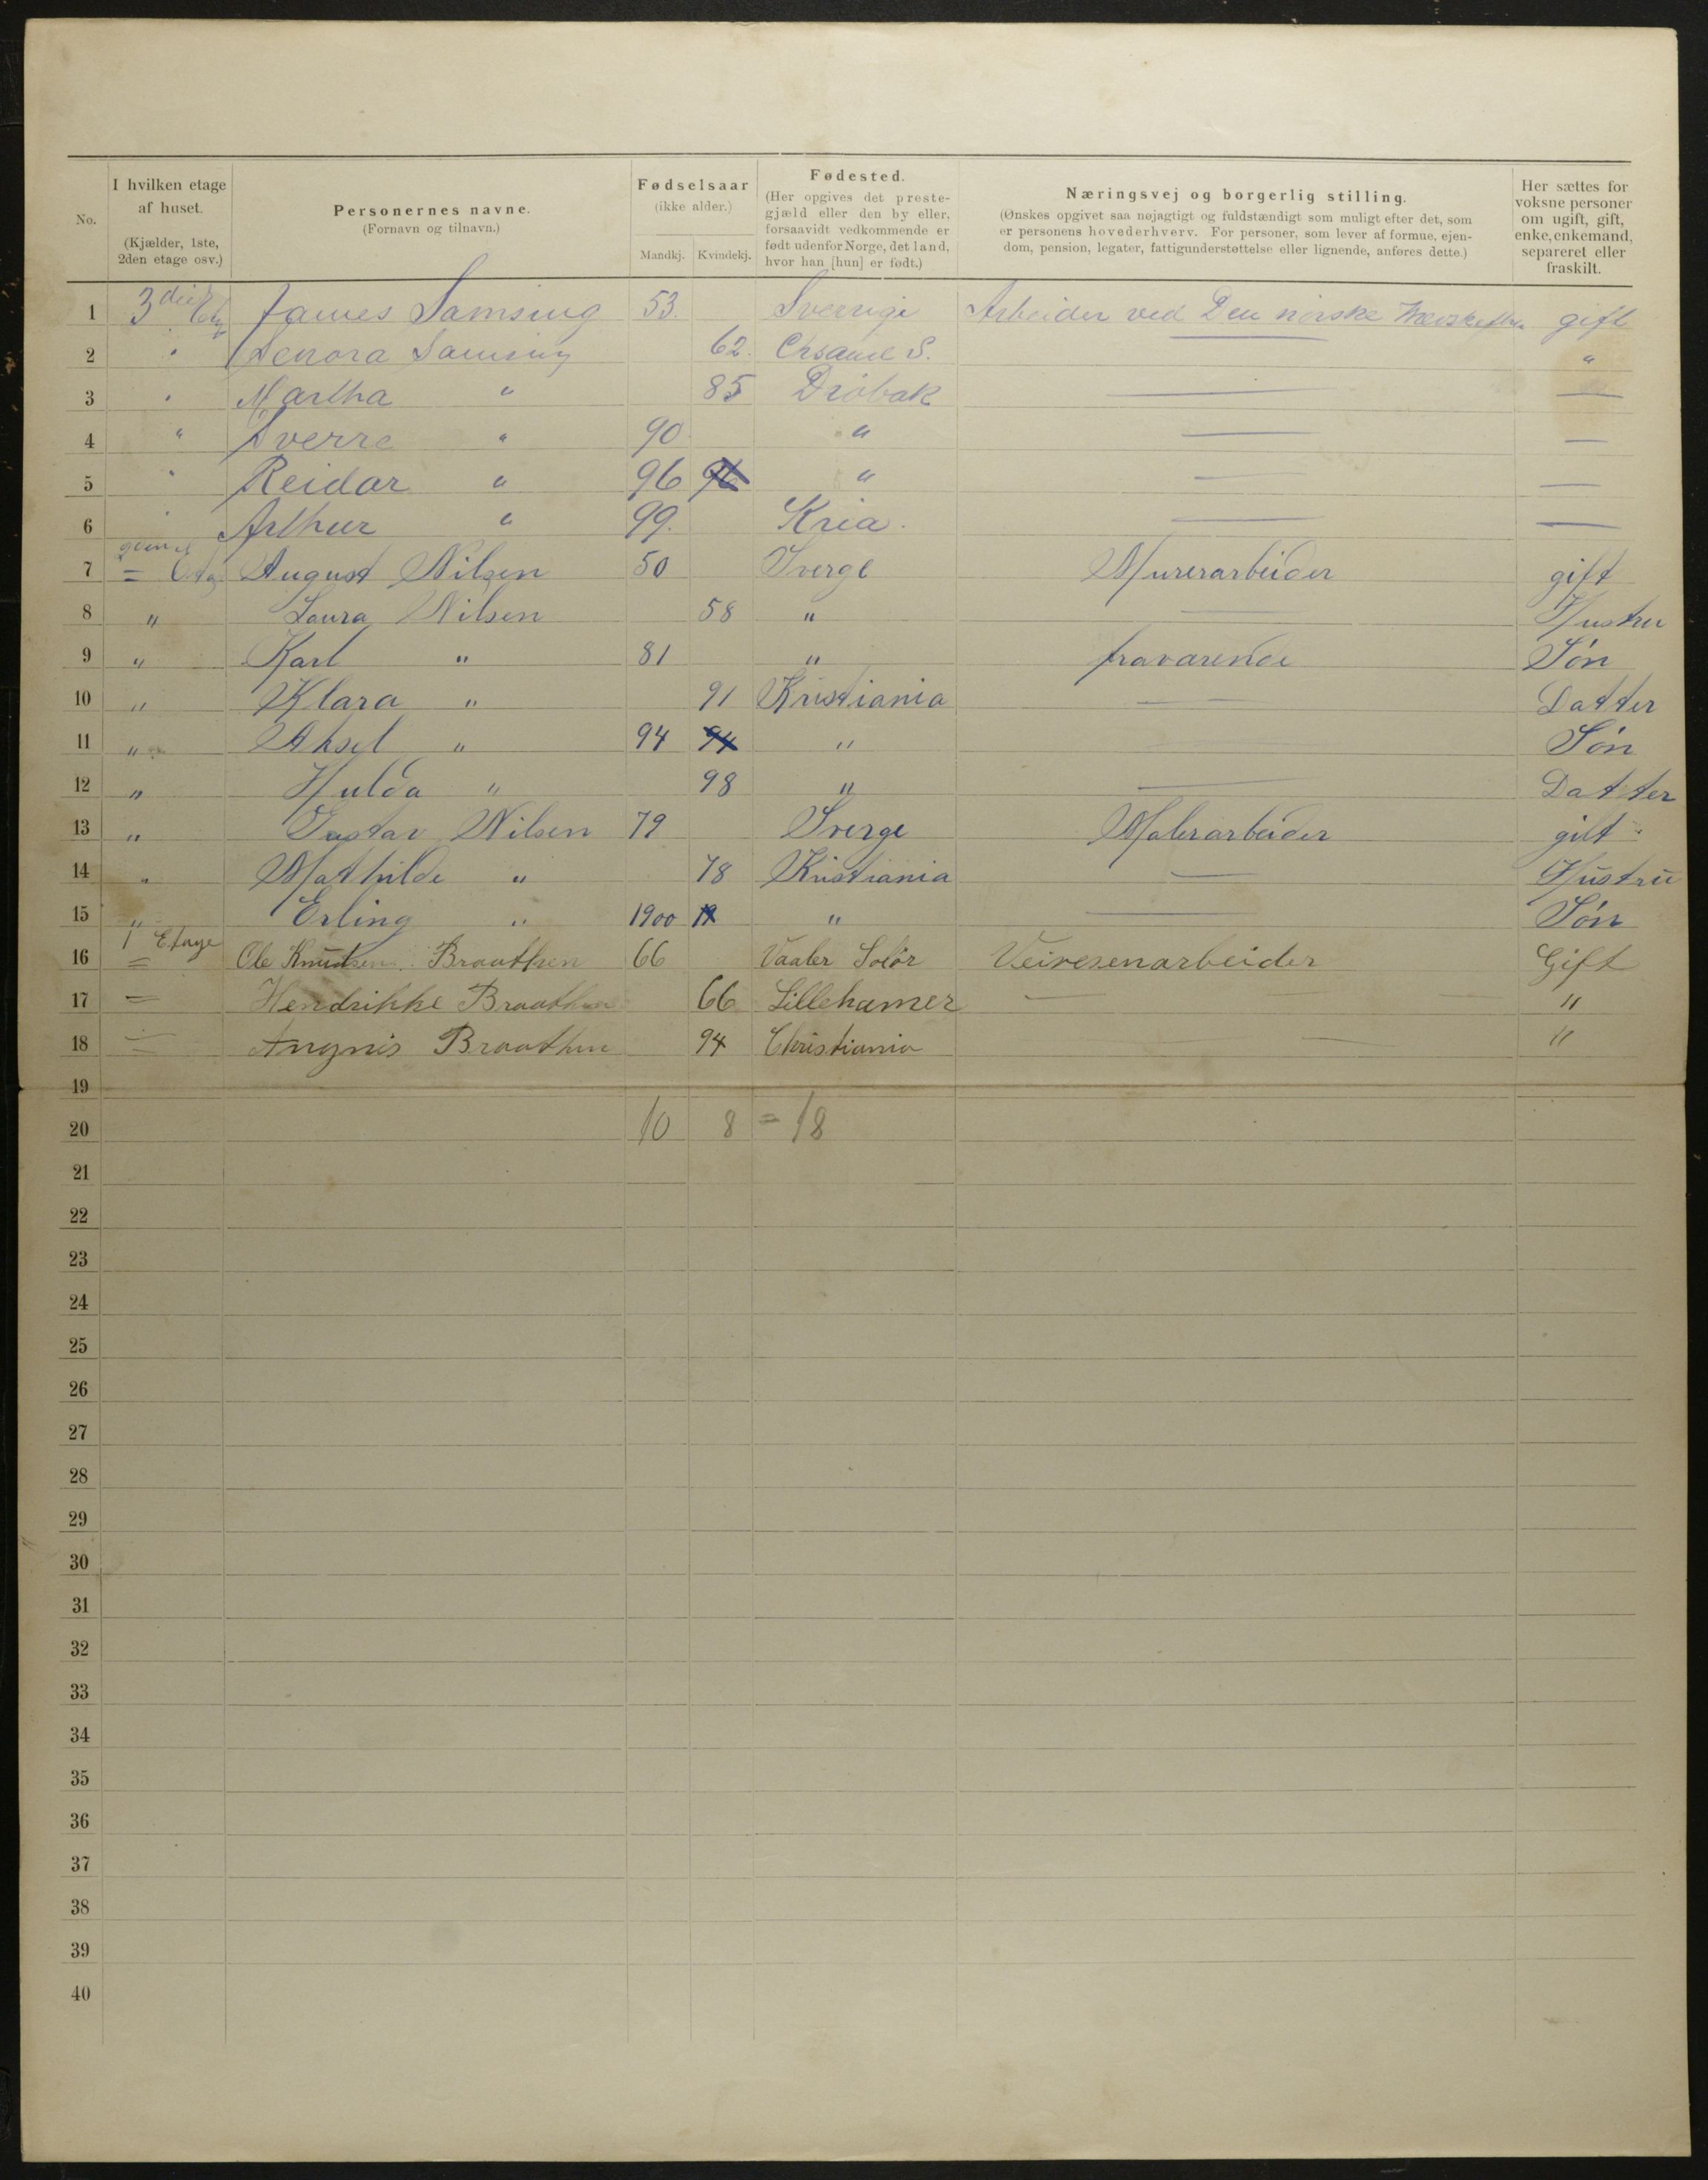 No.
I hvilken etage af huset.
(Kjælder, 1ste, 2den etage osv.)
Personernes navne.
(Fornavn og tilnavn.)
Fødselsaar
(ikke alder.)
Mandkj. Kvindekj.
Fødested.
(Her opgives det prestegjæld eller den by eller, forsaavidt vedkommende er født udenfor Norge, det land, hvor han [hun] er født.)
Næringsvej og borgerlig stilling.
(Ønskes opgivet saa nøjagtigt og fuldstændigt som muligt efter det, som er personens hovederhverv. For personer, som lever af formue, ejendom, pension, legater, fattigunderstøttelse eller lignende, anføres dette.)
Her sættes for voksne personer om ugift, gift, enke, enkemand, separeret eller fraskilt.
1 3die Etg James Samsing 53. Sverrige Arbeider ved Den norske gift
2 " Lenora Samsing 62. "
3 " Martha " 85 Drøbak — —
4 " Sverre " 90 " — —
5 " Reidar " 96 96 " — —
6 " Arthur " 99. Kria. — —
7 = Etag August Nilsen 50 Sverge Murerarbeider gift
8 " Laura Nilsen 58 " — Hustru
9 " Karl " 81 " fraværende Søn
10 " Klara " 91 Kristiania — Datter
11 " Aksel " 94 94 " — Søn
12 " Hulda " 98 " — Datter
13 " Gustav Nilsen 79 Sverge Malerarbeider gift
14 " Mathilde " 78 Kristiania — Hustru
15 " Erling " 1900 19 " — Søn
16 1 Etage = Ole Knudsen Braathen 66 Vaaler Solør Veivesenarbeider Gift
17 = Hendrikke Braathen 66 Lillehamer — — — "
18 = Angnis Braathen 94 Christiania — "
19
20 10 8 = 18
21
22
23
24
25
26
27
28
29
30
31
32
33
34
35
36
37
38
39
40